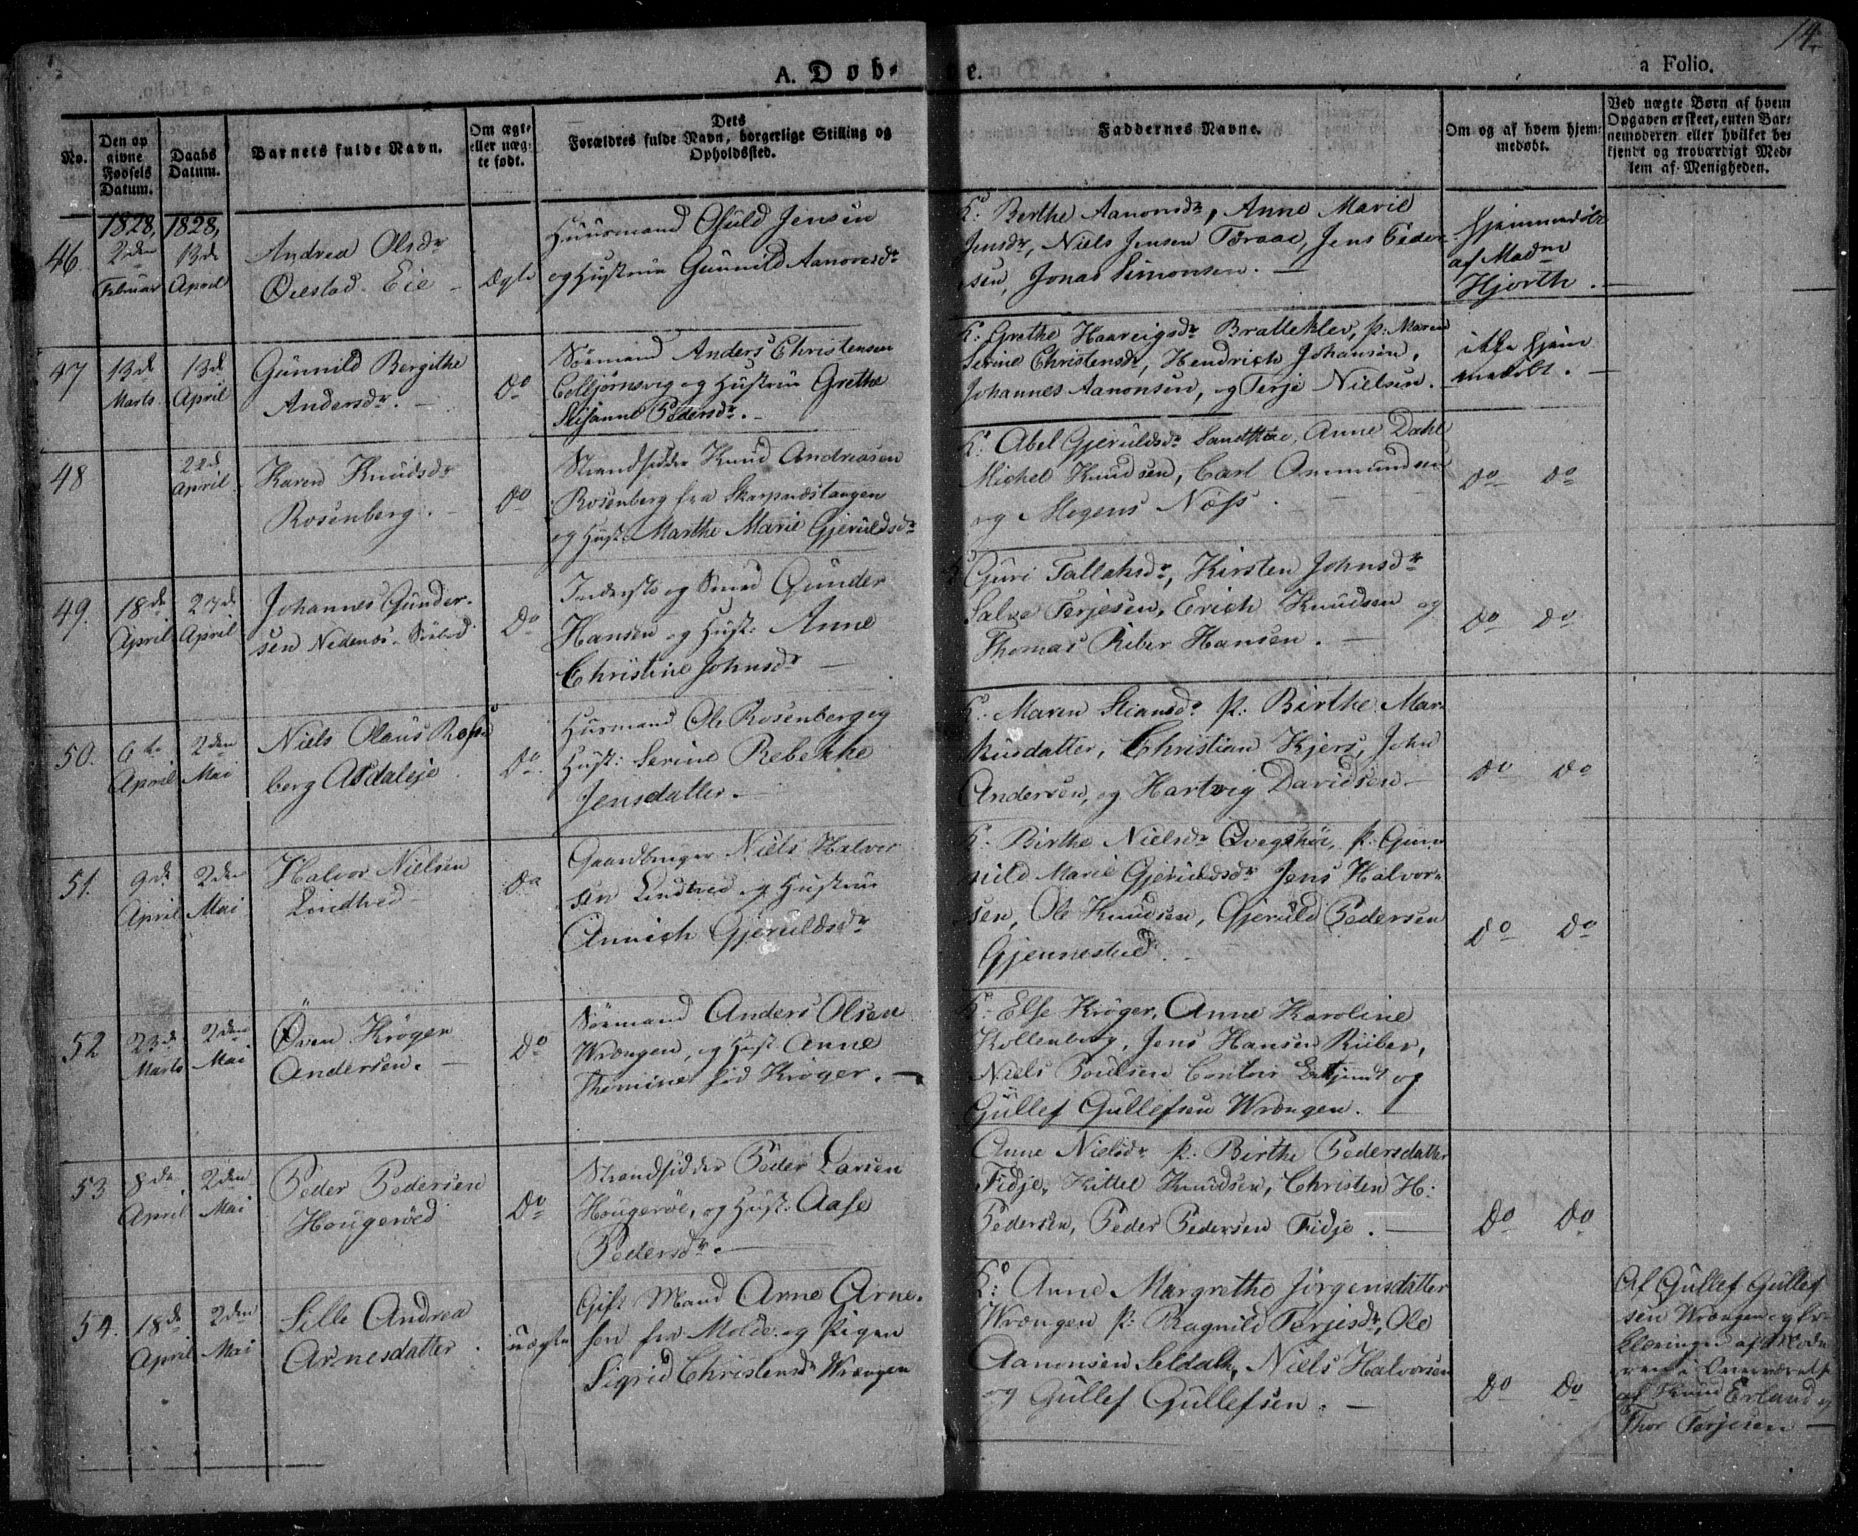 14.
A. Døb-
e.
a Folio.
No.
Den op
givne
Fødsels
Datum.
Daabs
Datum.
Barnets fulde Navn.
Om ægte
eller uæg-
te født.
Dets
Forældres fulde Navn, borgerlige Stilling og
Opholdssted.
Faddernes Navne.
Om og af hvem hjem-
medøbt.
Ved uægte Børn af hvem
Opgaven er skeet, enten Bar-
nemoderen eller hvilket be-
kjendt og troværdigt Med-
lem af Menigheden.
1828, 1828,
46
2den
Februar
13de
April
Andrea Olsdr
Øiestad Eie
Ægte
Huusmand Oluld Jensen
og Hustrue Gunnild Aanonsdr
K: Berthe Aanonsdr, Anne Marie
Jensdr, Niels Jensen Toraae, Jens Peder-
sen, Jonas Simonsen. —
Hjemmedøbt
af Madm
Hjorth.
47
13de
Marts
13de
April
Gunnild Bergithe
Andersdr. —
Do
Sømand Anders Christensen
Colbjørnsvig og Hustrue Grethe
Susanne Pedersdr. —
K: Grethe Haaveigsdr Bratteklev, p: Maren
Serine Christensdr, Hendrich Johansen,
Johannes Aanonsen, og Terje Nielsen.
ikke hjem
medøbt. —
48
22de
April
Karen Knudsdr
Rosenberg. —
Do
Strandsidder Knud Andreasen
Rosenberg fra Skarpnæstangen
og Hust: Marthe Marie Gjeruldsdr
K: Abel Gjeruldsdr Sandstøe, Anne Dahl
Michel Knudsen, Carl Ommundsen
og Mogens Næss.
Do Do
49.
18de
April
27de
April
Johannes Gunder-
sen Nedenæs
Do
Inderste og Smed Gunder
Hansen og Hust: Anne
Christine Johnsdr —
K: Guri Tallaksdr, Kirsten Johnsdr
Salve Terjesen, Erich Knudsen og
Thomas Riber Hansen. —
Do Do
50.
6te
April
2den
Mai
Niels Olaus Rosen
berg Asdaleje
Do
Husmand Ole Rosenberg og
Hust: Serine Rebekke
Jensdatter. —
K: Maren Stiansdr p: Birthe Mar-
kusdatter, Christian Kjers, John
Andersen, og Hartvig Davidsen —
Do Do
51.
9de
April
2den
Mai
Halvor Nielsen
Lindtved
Do
Gaardbruger Niels Halvor
sen Lindtved og Hustrue
Annich Gjeruldsdr
K: Birthe Nielsdr p: Gun
nild Marie Gjeruldsdr Jens Halvor-
sen, Ole Knudsen, Gjeruld Pedersen
Gjennestad. —
Do Do
52
23de
Marts
2den
Mai
Øven Krøger
Andersen. —
Do
Sømand Anders Olsen
Wrængen, og Hust Anne
Thomine fød Krøger. —
K: Else Krøger, Anne Karoline
Kollenberg, Jens Hansen Riiber,
Niels Poulsen Contoir Betjendt og
Gullef Gullefsen Wrængen. —
53
8de
April
2den
Mai
Peder Pedersen
Hougerøed
Do
Strandsidder Peder Larsen
Hougerøe, og Hust: Aase
Pedersdr. —
Anne Nielsdr p: Birthe Pedersdatter
Fidje, Kittel Knudsen, Christen H:
Pedersen, Peder Pedersen Fidje. —
Do Do
54.
18de
April
2den
Mai
Sille Andrea
Arnesdatter.
uægte
Gift Mand Arne Arne-
sen fra Molde og Pigen
Sigrid Christensdr Wrængen
K: Anne Margrethe Jørgensdatter
Wrængen p: Ragnild Terjesdr, Ole
Aanonsen Seldalh, Niels Halvorsen
og Gullef Gullefsen. —
Do Do
Af Gullef Gullef
sen Wrængen og Er-
klæringen af Mode
ren i Overværelse
af Knud Erland og
Thor Terjesen —